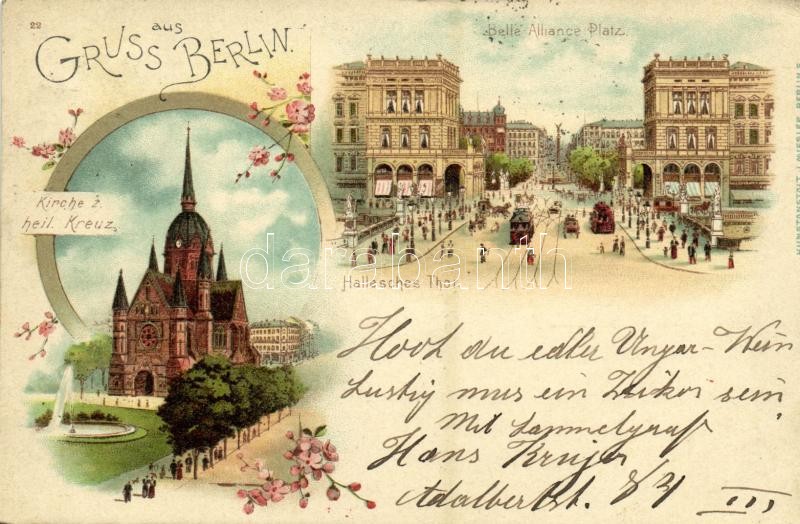 22
GRUSS aus BERLIN.
Belle Alliance Platz.
Kirche z.
heil. Kreuz.
Hallesches Thor.
darabanth
Hoch du edler Ungar-Wein
Lustig mus ein Zeikor sein
Mit Sammelgruß
Hans Krüger
Adalbertst. 84
III